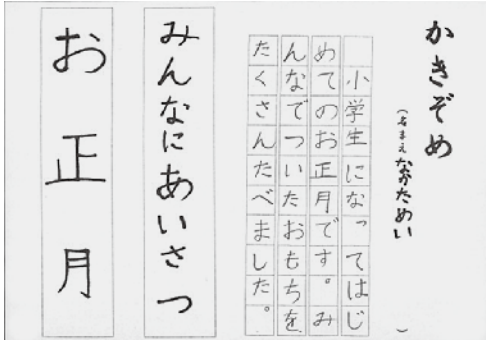 かきぞめ
（なまえ ）
　小学生になってはじ
めてのお正月です。み
んなでついたおもちを
たくさんたべました。
みんなにあいさつ
お正月